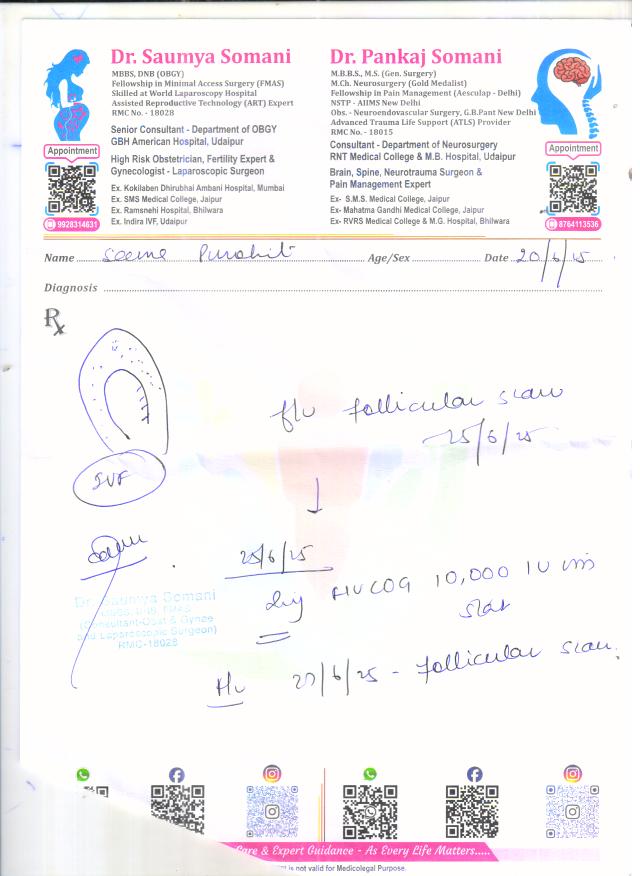 Dr. Saumya Somani
MBBS, DNB (OBGY)
Fellowship in Minimal Access Surgery (FMAS)
Skilled at World Laparoscopy Hospital
Assisted Reproductive Technology (ART) Expert
RMC No. - 18028
Senior Consultant - Department of OBGY
GBH American Hospital, Udaipur
High Risk Obstetrician, Fertility Expert &
Gynecologist - Laparoscopic Surgeon
Ex. Kokilaben Dhirubhai Ambani Hospital, Mumbai
Ex. SMS Medical College, Jaipur
Ex. Ramsnehi Hospital, Bhilwara
Ex. Indira IVF, Udaipur
Appointment
9928314631
Dr. Pankaj Somani
M.B.B.S., M.S. (Gen. Surgery)
M.Ch. Neurosurgery (Gold Medalist)
Fellowship in Pain Management (Aesculap - Delhi)
NSTP - AIIMS New Delhi
Obs. - Neuroendovascular Surgery, G.B.Pant New Delhi
Advanced Trauma Life Support (ATLS) Provider
RMC No. - 18015
Consultant - Department of Neurosurgery
RNT Medical College & M.B. Hospital, Udaipur
Brain, Spine, Neurotrauma Surgeon &
Pain Management Expert
Ex- S.M.S. Medical College, Jaipur
Ex- Mahatma Gandhi Medical College, Jaipur
Ex- RVRS Medical College & M.G. Hospital, Bhilwara
Appointment
8764113536
Name Seema Purohit Age/Sex Date 20/6/25
Diagnosis
Rx
f/u follicular scan
25/6/25
IVF
25/6/25
Inj HUCOG 10,000 IU im
stat
Dr. Saumya Somani
MBBS, DNB, FMAS
(Consultant-Obst & Gynae
and Laparoscopic Surgeon)
RMC-18028
27/6/25 - follicular scan.
Care & Expert Guidance - As Every Life Matters.....
is not valid for Medicolegal Purpose.